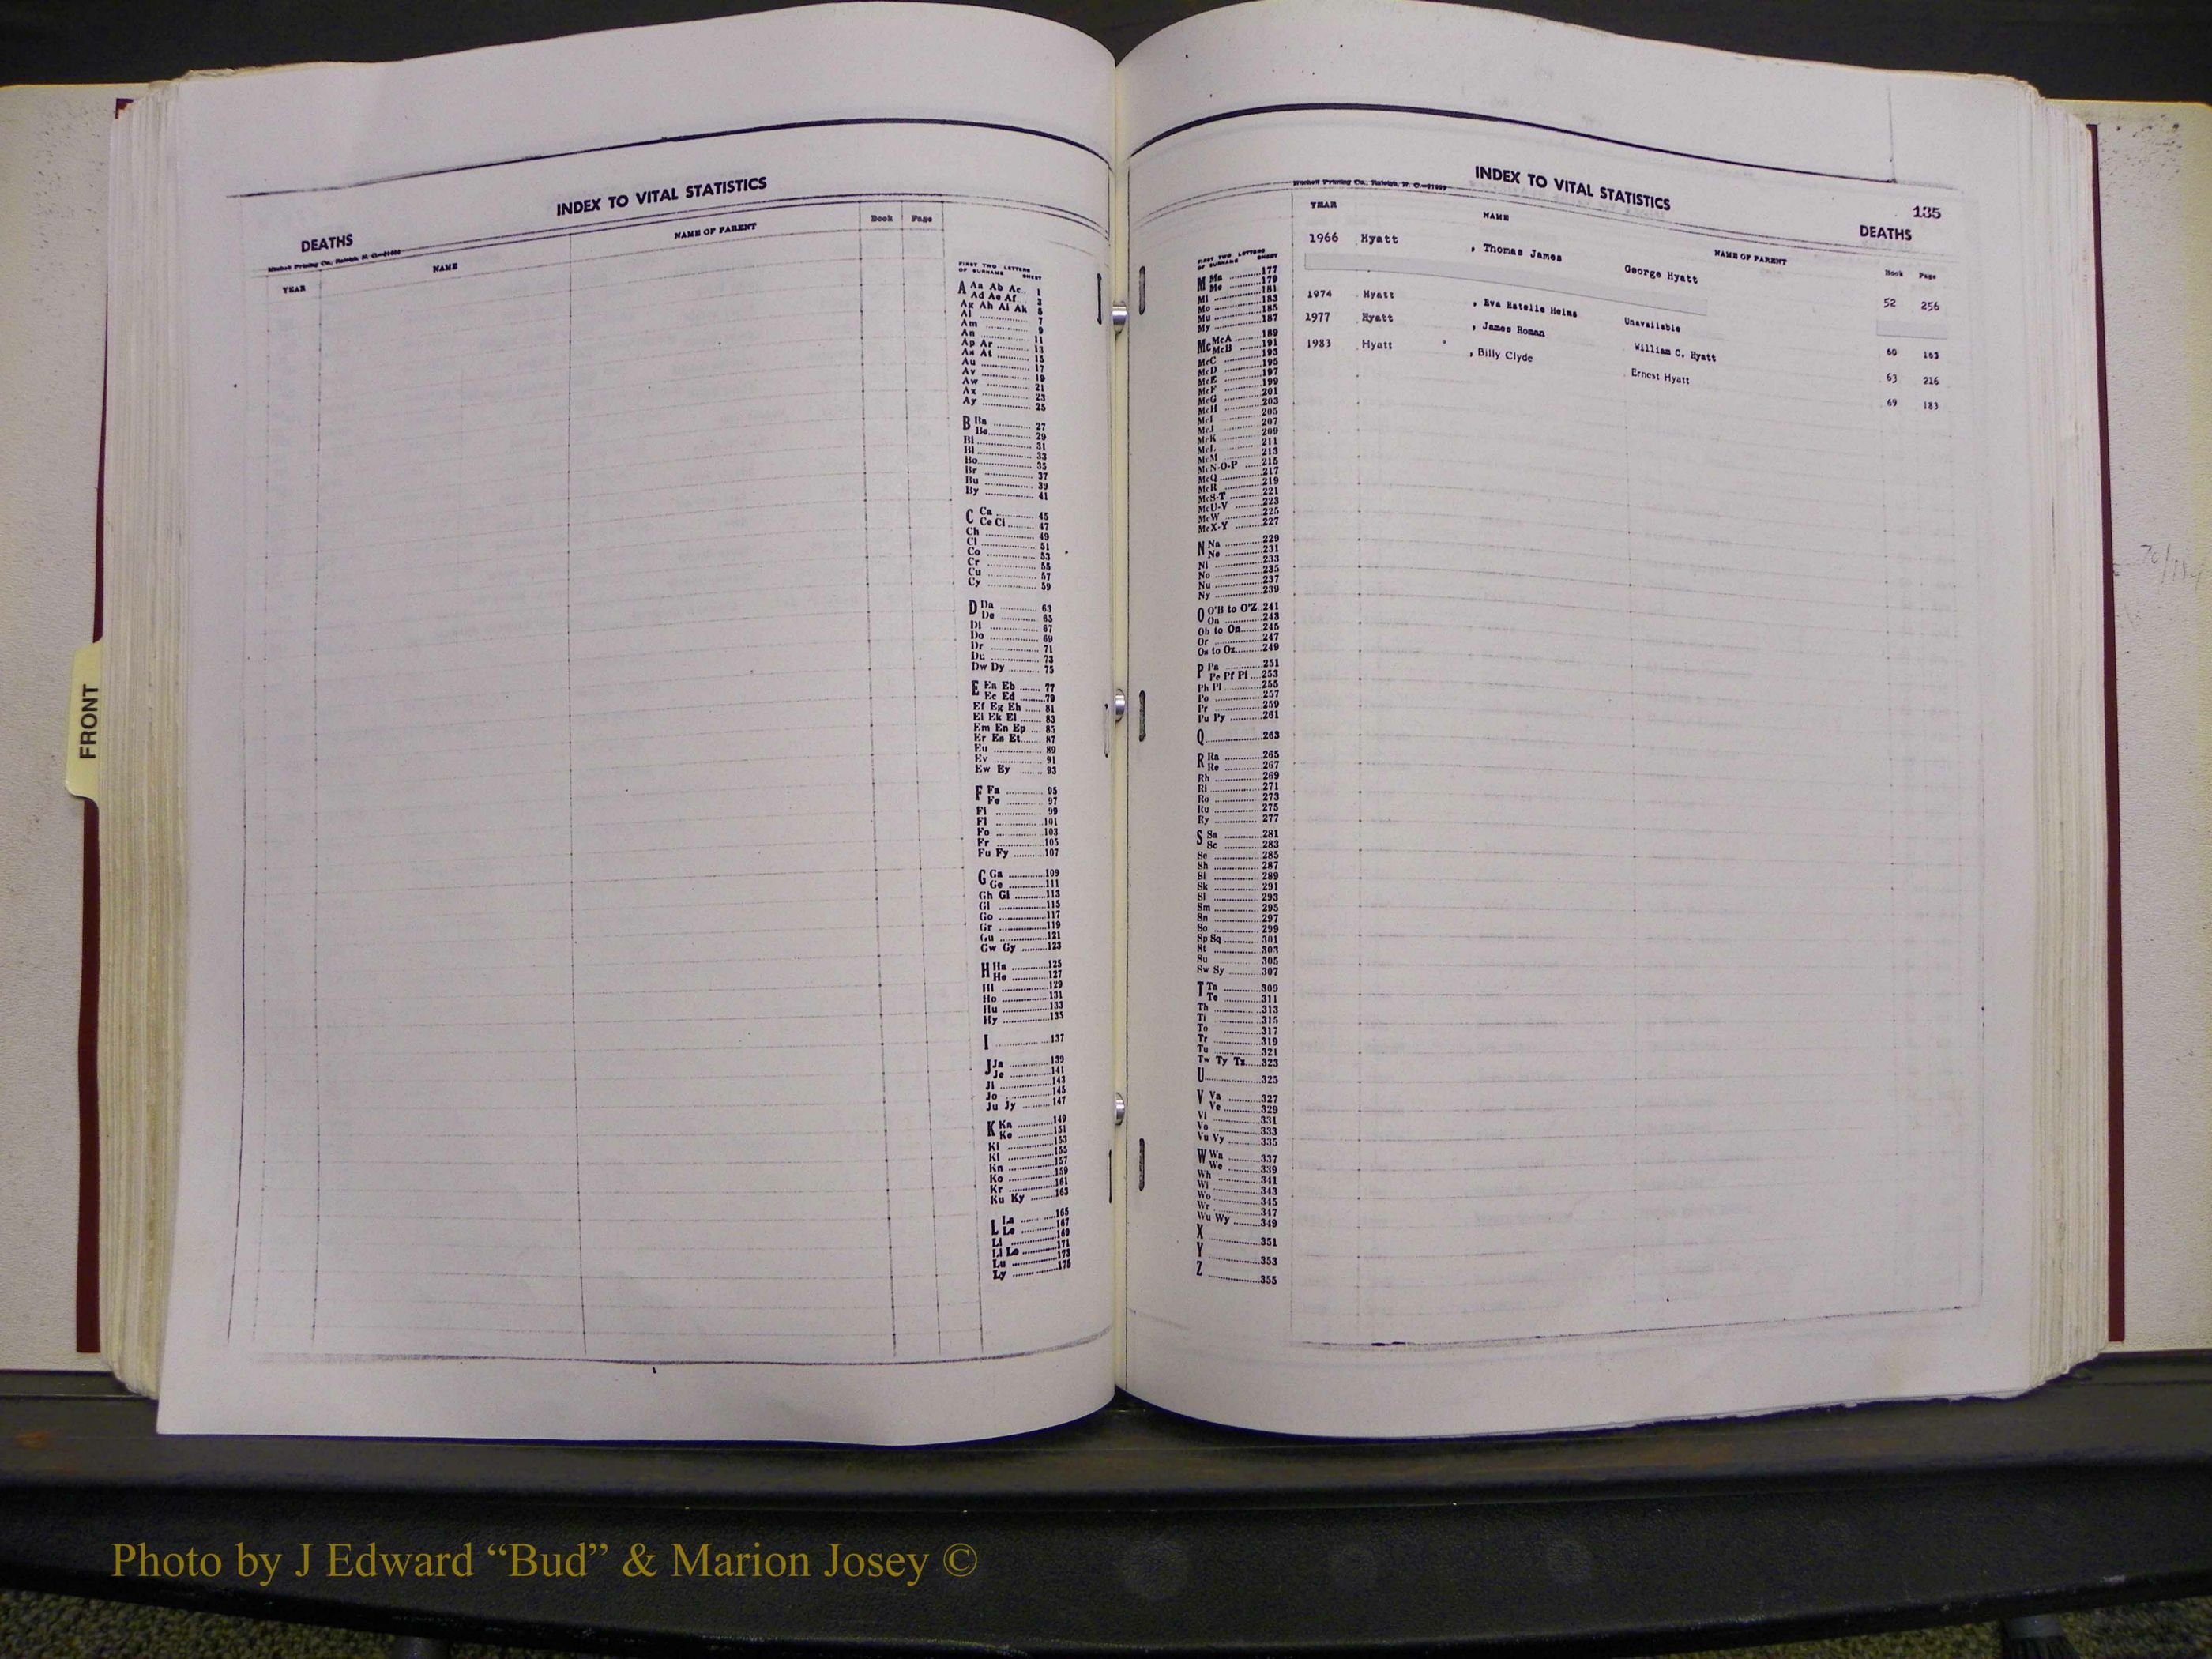 INDEX TO VITAL STATISTICS
DEATHS
Mitchell Printing Co., Raleigh, N. C.
YEAR NAME NAME OF PARENT Book Page
FIRST TWO LETTERS
OF SURNAME SHEET
A Aa Ab Ac 1
Ad Ae Af 3
Ag Ah Ai Ak 5
Al 7
Am 9
An 11
Ap Ar 13
As At 15
Au 17
Av 19
Aw 21
Ax 23
Ay 25
B Ba 27
Be 29
Bi 31
Bl 33
Bo 35
Br 37
Bu 39
By 41
C Ca 45
Ce Ci 47
Ch 49
Cl 51
Co 53
Cr 55
Cu 57
Cy 59
D Da 63
De 65
Di 67
Do 69
Dr 71
Du 73
Dw Dy 75
E Ea Eb 77
Ec Ed 79
Ef Eg Eh 81
Ei Ek El 83
Em En Ep 85
Er Es Et 87
Eu 89
Ev 91
Ew Ey 93
F Fa 95
Fe 97
Fi 99
Fl 101
Fo 103
Fr 105
Fu Fy 107
G Ga 109
Ge 111
Gh Gi 113
Gl 115
Go 117
Gr 119
Gu 121
Gw Gy 123
H Ha 125
He 127
Hi 129
Ho 131
Hu 133
Hy 135
I 137
J Ja 139
Je 141
Ji 143
Jo 145
Ju Jy 147
K Ka 149
Ke 151
Ki 153
Kl 155
Kn 157
Ko 159
Kr 161
Ku Ky 163
L La 165
Le 167
Li 169
Ll Lo 171
Lu 173
Ly 175
INDEX TO VITAL STATISTICS
Mitchell Printing Co., Raleigh, N. C.
135
DEATHS
YEAR NAME NAME OF PARENT Book Page
1966 Hyatt , Thomas James George Hyatt 52 256
1974 Hyatt , Eva Estelle Helms Unavailable 60 163
1977 Hyatt , James Roman William C. Hyatt 63 216
1983 Hyatt , Billy Clyde Ernest Hyatt 69 183
FIRST TWO LETTERS
OF SURNAME SHEET
M Ma 177
Me 179
Mi 181
Mo 183
Mu 185
My 187
Mc McA 189
McB 191
McC 193
McD 195
McE 197
McF 199
McG 201
McH 203
McI 205
McJ 207
McK 209
McL 211
McM 213
McN-O-P 215
McQ 217
McR 219
McS-T 221
McU-V 223
McW 225
McX-Y 227
N Na 229
Ne 231
Ni 233
No 235
Nu 237
Ny 239
O O'B to O'Z 241
Oa 243
Ob to On 245
Or 247
Os to Oz 249
P Pa 251
Pe Pf Pi 253
Ph Pl 255
Po 257
Pr 259
Pu Py 261
Q 263
R Ra 265
Re 267
Rh 269
Ri 271
Ro 273
Ru 275
Ry 277
S Sa 281
Sc 283
Se 285
Sh 287
Si 289
Sk 291
Sl 293
Sm 295
Sn 297
So 299
Sp Sq 301
St 303
Su 305
Sw Sy 307
T Ta 309
Te 311
Th 313
Ti 315
To 317
Tr 319
Tu 321
Tw Ty Tz 323
U 325
V Va 327
Ve 329
Vi 331
Vo 333
Vu Vy 335
W Wa 337
We 339
Wh 341
Wi 343
Wo 345
Wr 347
Wu Wy 349
X 351
Y 353
Z 355
FRONT
Photo by J Edward “Bud” & Marion Josey ©